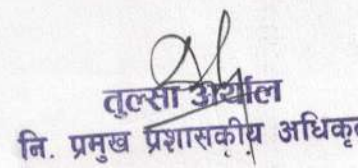 तुल्सी अर्याल
नि. प्रमुख प्रशासकीय अधिकृत